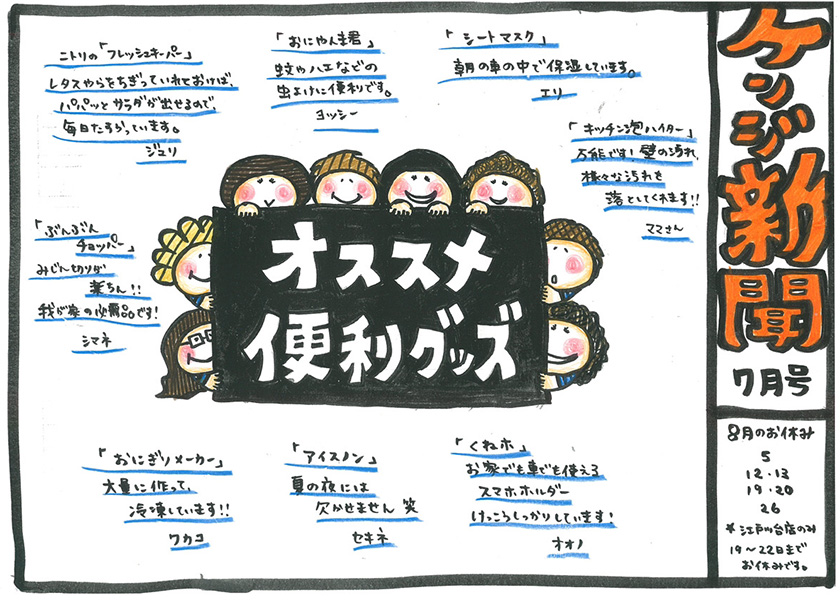 ケンジ新聞
7月号
8月のお休み
5
12・13
19・20
26
*江戸ヶ台店のみ
19〜22日まで
お休みです。
オススメ
便利グッズ
「シートマスク」
朝の車の中で保湿しています。
エリ
「おにやんま君」
蚊やハエなどの
虫よけに便利です。
ヨッシー
ニトリの「フレッシュキーパー」
レタスやらをちぎっていれておけば、
パパッとサラダが出せるので、
毎日たすかっています。
ジュリ
「キッチン泡ハイター」
万能です!壁の汚れ、
様々な汚れを
落としてくれます!!
ママさん
「ぶんぶん
チョッパー」
みじん切りが
楽ちん!!
我が家の必需品です!
シマネ
「おにぎりメーカー」
大量に作って、
冷凍しています!!
ワカコ
「アイスノン」
夏の夜には
欠かせません 笑
セキネ
「くねホ」
お家でも車でも使える
スマホホルダー
けっこうしっかりしています!
オオノ